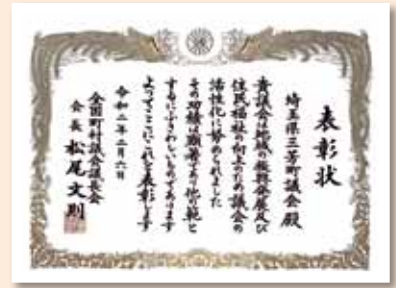 表彰状
埼玉県三芳町議会殿
貴議会は地域の振興発展及び
住民福祉の向上のため議会の
活性化に努められました
その功績は顕著であり他の範と
するにふさわしいものであります
よってここにこれを表彰します
令和二年二月六日
全国町村議会議長会
会長 松尾文則